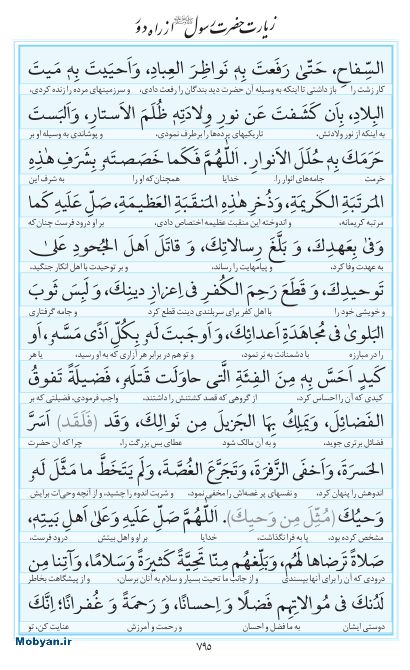 زیارت حضرت رسول ﷺ از راه دور
السِّفاحِ، حَتّىٰ رَفَعتَ بِهِ نَواظِرَ العِبادِ، وَاَحيَيتَ بِهِ مَيتَ
کار زشت را باز داشتی تا اینکه به وسیله آن حضرت دید بندگان را رفعت دادی، و سرزمینهای مرده را زنده کردی،
البِلادِ، بِاَن كَشَفتَ عَن نورِ وِلادَتِهِ ظُلَمَ الاَستارِ، وَاَلبَستَ
به اینکه از نور ولادتش، تاریکیهای پرده‌ها را برطرف نمودی، و پوشاندی به وسیله او بر
حَرَمَكَ بِهِ حُلَلَ الاَنوارِ. اَللّٰهُمَّ فَكَما خَصَصتَهُ بِشَرَفِ هٰذِهِ
حرمت جامه‌های انوار را. خدایا همچنان‌که او را به شرف این
المَرتَبَةِ الكَريمَةِ، وَذُخرِ هٰذِهِ المَنقَبَةِ العَظيمَةِ، صَلِّ عَلَيهِ كَما
مرتبه کریمانه، و اندوخته این منقبت عظیمه اختصاص دادی، بر او درود فرست چنان که
وَفىٰ بِعَهدِكَ، وَ بَلَّغَ رِسالاتِكَ، وَ قاتَلَ اَهلَ الجُحودِ عَلىٰ
به عهدت وفا کرد، و پیامهایت را رساند، و بر توحیدت با اهل انکار جنگید،
تَوحيدِكَ، وَ قَطَعَ رَحِمَ الكُفرِ فى اِعزازِ دينِكَ، وَ لَبِسَ ثَوبَ
و خویشی خود را با اهل کفر برای سربلندی دینت قطع کرد و جامه گرفتاری
البَلوىٰ فى مُجاهَدَةِ اَعدائِكَ، وَ اَوجَبتَ لَهُ بِكُلِّ اَذًى مَسَّهُ، اَو
را در مبارزه با دشمنانت به بر نمود، و تو هم در برابر هر آزاری که به او رسید، یا هر
كَيدٍ اَحَسَّ بِهِ مِنَ الفِئَةِ الَّتى حاوَلَت قَتلَهُ، فَضيلَةً تَفوقُ
کیدی که آن را احساس کرد، از گروهی که قصد کشتنش را داشتند، واجب فرمودی، فضیلتی که بر
الفَضائِلَ، وَيَملِكُ بِهَا الجَزيلَ مِن نَوالِكَ، وَقَد (فَلَقَد) اَسَرَّ
فضائل برتری جوید، و به آن مالک شود عطای بس بزرگت را، چرا که آن حضرت
الحَسرَةَ، وَاَخفَى الزَّفرَةَ، وَتَجَرَّعَ الغُصَّةَ، وَلَم يَتَخَطَّ ما مَثَّلَ لَهُ
اندوهش را پنهان کرد، و نفسهای پر غصه‌اش را مخفی نمود، و شربت اندوه را چشید، و از آنچه وحی‌ات برایش
وَحيُكَ (مُثِّلَ مِن وَحيِكَ). اَللّٰهُمَّ صَلِّ عَلَيهِ وَعَلىٰ اَهلِ بَيتِهِ،
مشخص کرده بود، پا به فرا نگذاشت، خدایا بر او و اهل بیتش درود فرست،
صَلاةً تَرضاها لَهُم، وَبَلِّغهُم مِنّا تَحِيَّةً كَثيرَةً وَسَلامًا، وَآتِنا مِن
درودی که آن را برای آنها بپسندی و از جانب ما تحیت بسیار و سلام به آنان برسان، و از پیشگاهت بخاطر
لَدُنكَ فى مُوالاتِهِم فَضلًا وَ اِحسانًا، وَ رَحمَةً وَ غُفرانًا؛ اِنَّكَ
دوستی ایشان به ما فضل و احسان و رحمت و آمرزش عنایت کن، تو
۷۹۵
Mobyan.ir